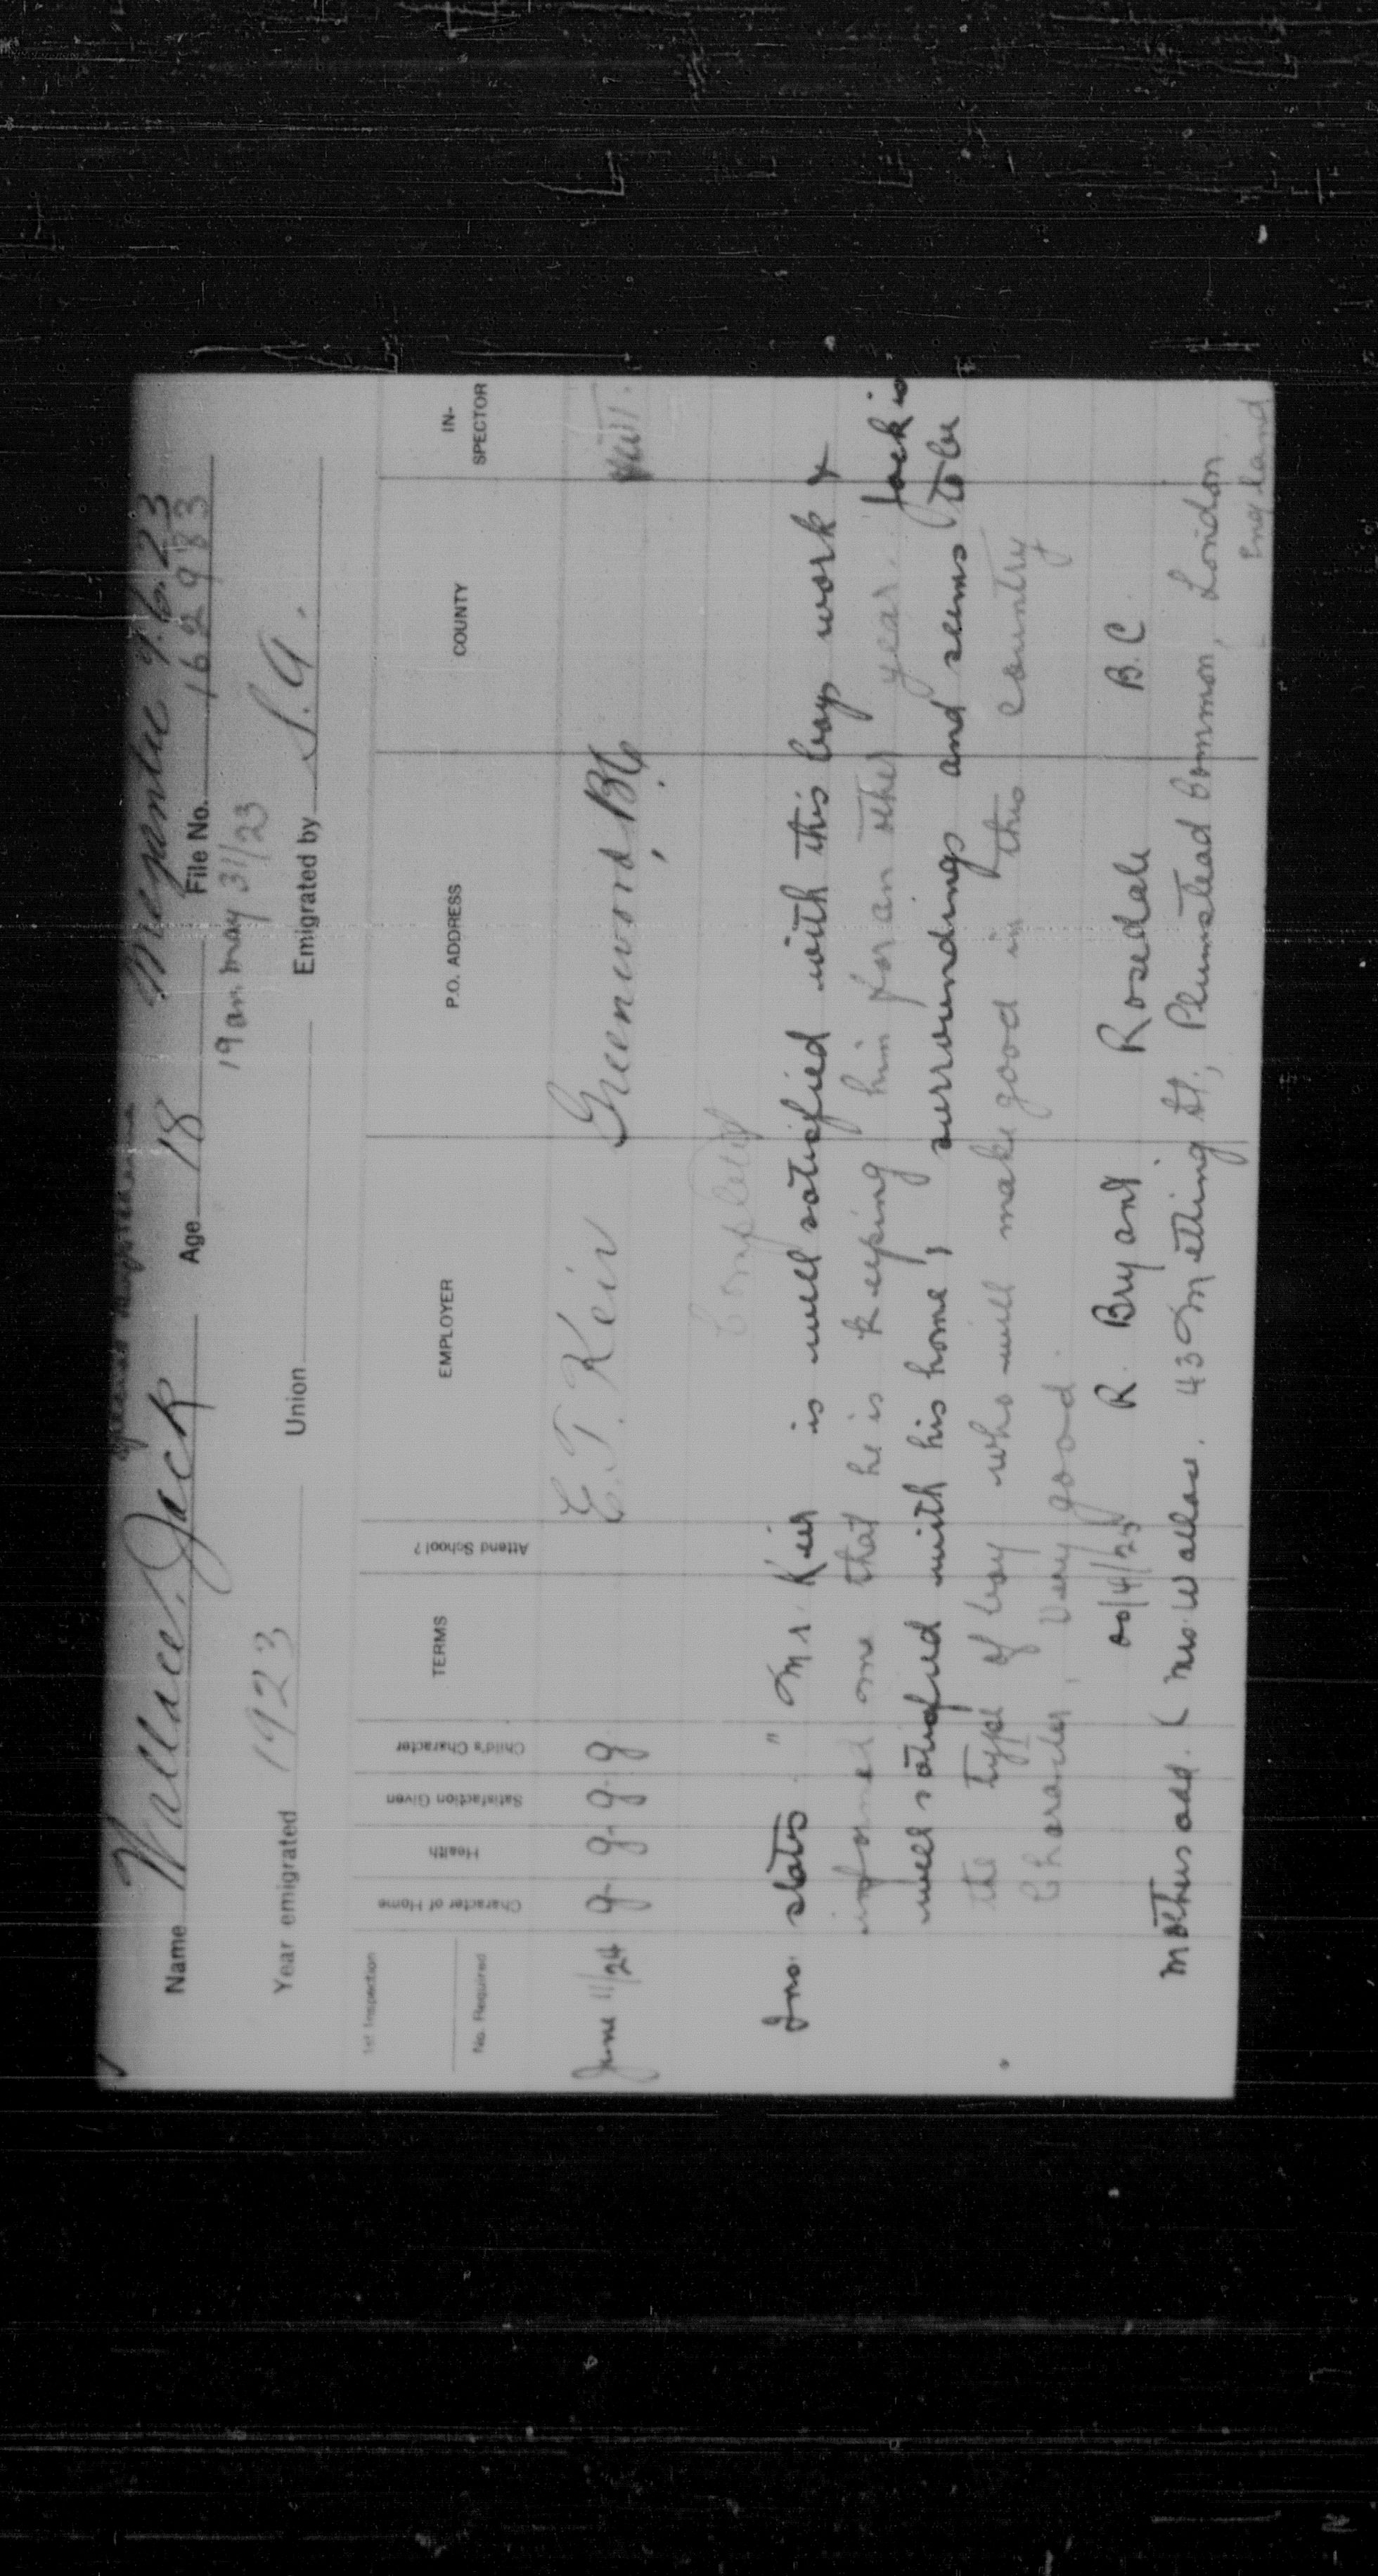 Name Wallace, Jack Age 18 Megantic 9.6.23
File No. 162983
19 on May 31/23
Year emigrated 1923 Union Emigrated by S.A.
1st Inspection
No. Required Character of Home Health Satisfaction Given Child's Character TERMS Attend School? EMPLOYER P.O. ADDRESS COUNTY IN-SPECTOR
June 11/24 g. g. g. g E.T. Keir Greenwood, B.C.
Completed
Ins. states "Mr Keir is well satisfied with this boys work &
informed me that he is keeping him for an other year. Jack is
well satisfied with his home, surroundings and seems to be
the type of boy who will make good in this country
Character, Very good.
/4/25 R. Bryant Rosedale B.C.
Mothers add. ( Mrs. Wallace. 43 Metting St., Plumstead Common, London
England